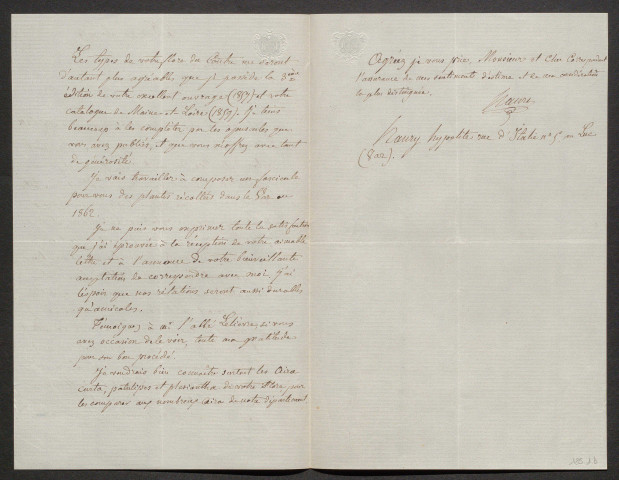 Les types de votre flore du Centre me seront
d'autant plus agréables que je possède la 3ème
édition de votre excellent ouvrage (1857) et votre
catalogue de Maine et Loire (1859). Je tiens
beaucoup à les compléter par les opuscules que
vous avez publiés, et que vous m'offrez avec tant
de générosité.
Je vais travailler à composer un fascicule
pour vous des plantes récoltées dans le Var en
1862.
Je ne puis vous exprimer toute la satisfaction
que j'ai éprouvée à la réception de votre aimable
lettre et à l'annonce de votre bienveillante
acceptation de correspondre avec moi. J'ai
l'espoir que nos relations seront aussi durables
qu'amicales.
Témoignez à mr l'abbé Lelievre, si vous
avez occasion de le voir, toute ma gratitude
pour son bon procédé.
Je voudrais bien connaître surtout les Aira
curta, patulipes et plesiantha de votre flore, pour
les comparer aux nombreux aira de notre département
Agréez je vous prie, Monsieur et Cher Correspondant
l'assurance de mes sentiments d'estime et de ma considération
la plus distinguée.
Hanry
Hanry hypolite rue d'Italie n° 5 au Luc
(Var).